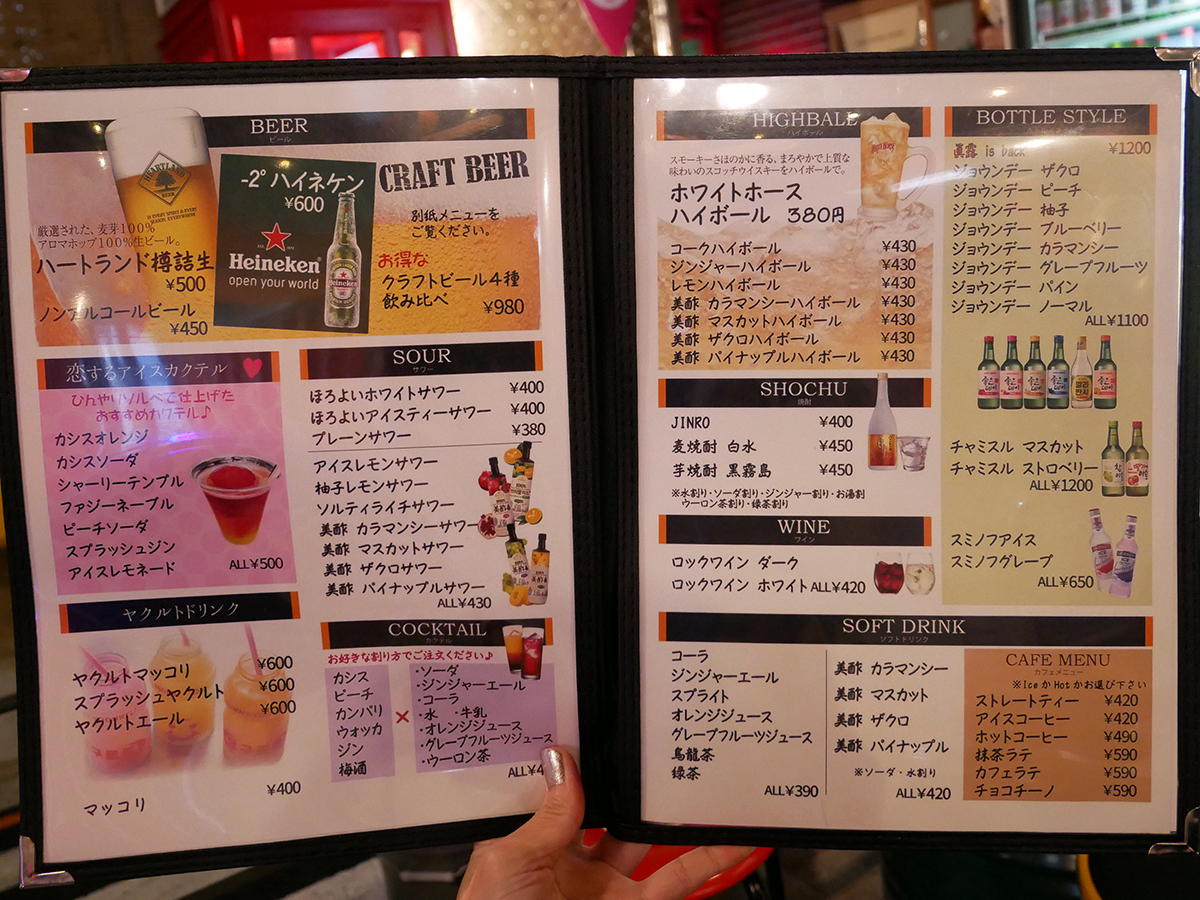 BEER
ビール
HEARTLAND
BEER
厳選された、麦芽100%
アロマホップ100%生ビール。
ハートランド樽詰生
¥500
ノンアルコールビール
¥450
-2° ハイネケン
¥600
Heineken
open your world
CRAFT BEER
別紙メニューを
ご覧ください。
お得な
クラフトビール4種
飲み比べ
¥980
恋するアイスカクテル
ひんやりソルベで仕上げた
おすすめカクテル♪
カシスオレンジ
カシスソーダ
シャーリーテンプル
ファジーネーブル
ピーチソーダ
スプラッシュジン
アイスレモネード
ALL¥500
ヤクルトドリンク
ヤクルトマッコリ ¥600
スプラッシュヤクルト ¥600
ヤクルトエール ¥600
¥400
マッコリ
SOUR
サワー
ほろよいホワイトサワー ¥400
ほろよいアイスティーサワー ¥400
プレーンサワー ¥380
アイスレモンサワー
柚子レモンサワー
ソルティライチサワー
美酢 カラマンシーサワー
美酢 マスカットサワー
美酢 ザクロサワー
美酢 パイナップルサワー
ALL¥430
COCKTAIL
カクテル
お好きな割り方でご注文ください♪
カシス
ピーチ
カンパリ
ウォッカ
ジン
梅酒
×
・ソーダ
・ジンジャーエール
・コーラ
・水 ・牛乳
・オレンジジュース
・グレープフルーツジュース
・ウーロン茶
ALL¥4
HIGHBALL
ハイボール
スモーキーさほのかに香る、まろやかで上質な
味わいのスコッチウイスキーをハイボールで。
ホワイトホース
ハイボール 380円
コークハイボール ¥430
ジンジャーハイボール ¥430
レモンハイボール ¥430
美酢 カラマンシーハイボール ¥430
美酢 マスカットハイボール ¥430
美酢 ザクロハイボール ¥430
美酢 パイナップルハイボール ¥430
SHOCHU
焼酎
JINRO ¥400
麦焼酎 白水 ¥450
芋焼酎 黒霧島 ¥450
※水割り・ソーダ割り・ジンジャー割り・お湯割
ウーロン茶割り・緑茶割り
WINE
ワイン
ロックワイン ダーク
ロックワイン ホワイト ALL¥420
BOTTLE STYLE
眞露 is back ¥1200
ジョウンデー ザクロ
ジョウンデー ピーチ
ジョウンデー 柚子
ジョウンデー ブルーベリー
ジョウンデー カラマンシー
ジョウンデー グレープフルーツ
ジョウンデー パイン
ジョウンデー ノーマル
ALL¥1100
チャミスル マスカット
チャミスル ストロベリー
ALL¥1200
スミノフアイス
スミノフグレープ
ALL¥650
SOFT DRINK
ソフトドリンク
コーラ
ジンジャーエール
スプライト
オレンジジュース
グレープフルーツジュース
烏龍茶
緑茶
ALL¥390
美酢 カラマンシー
美酢 マスカット
美酢 ザクロ
美酢 パイナップル
※ソーダ・水割り
ALL¥420
CAFE MENU
カフェメニュー
※IceかHotかお選び下さい
ストレートティー ¥420
アイスコーヒー ¥420
ホットコーヒー ¥490
抹茶ラテ ¥590
カフェラテ ¥590
チョコチーノ ¥590